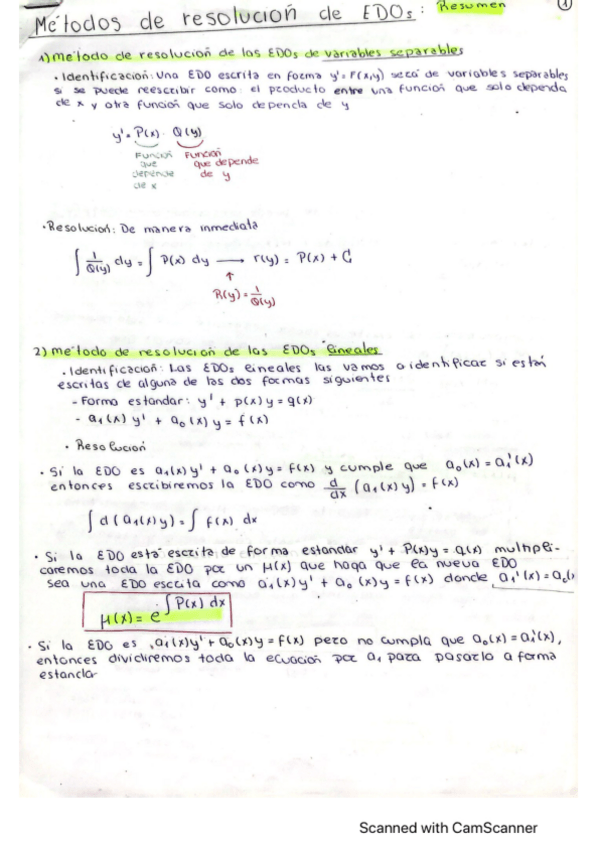 Métodos de resolución de EDOs: Resumen
1
1) Método de resolución de las EDOs de variables separables
· Identificación: Una EDO escrita en forma y' = F(x,y) será de variables separables
si se puede reescribir como: el producto entre una función que solo dependa
de x y otra función que solo dependa de y
y' = P(x) · Q(y)
Función Función
que que depende
depende de y
de x
· Resolución: De manera inmediata
∫ 1/Q(y) dy = ∫ P(x) dy → r(y) = P(x) + C
↑
R(y) = 1/Q(y)
2) Método de resolución de las EDOs lineales
· Identificación: Las EDOs lineales las vamos a identificar si están
escritas de alguna de las dos formas siguientes
- Forma estandar: y' + p(x) y = q(x)
- a₁(x) y' + a₀(x) y = f(x)
· Resolución
· Si la EDO es a₁(x) y' + a₀(x) y = f(x) y cumple que a₀(x) = a₁'(x)
entonces escribiremos la EDO como d/dx (a₁(x) y) = f(x)
∫ d(a₁(x) y) = ∫ f(x) dx
· Si la EDO está escrita de forma estandar y' + P(x) y = Q(x) multipli-
caremos toda la EDO por un μ(x) que haga que la nueva EDO
sea una EDO escrita como a₁(x) y' + a₀(x) y = f(x) donde a₁'(x) = a₀(
μ(x) = e^∫ P(x) dx
· Si la EDO es a₁(x) y' + a₀(x) y = f(x) pero no cumpla que a₀(x) = a₁'(x),
entonces dividiremos toda la ecuación por a₁ para pasarlo a forma
estanda
Scanned with CamScanner